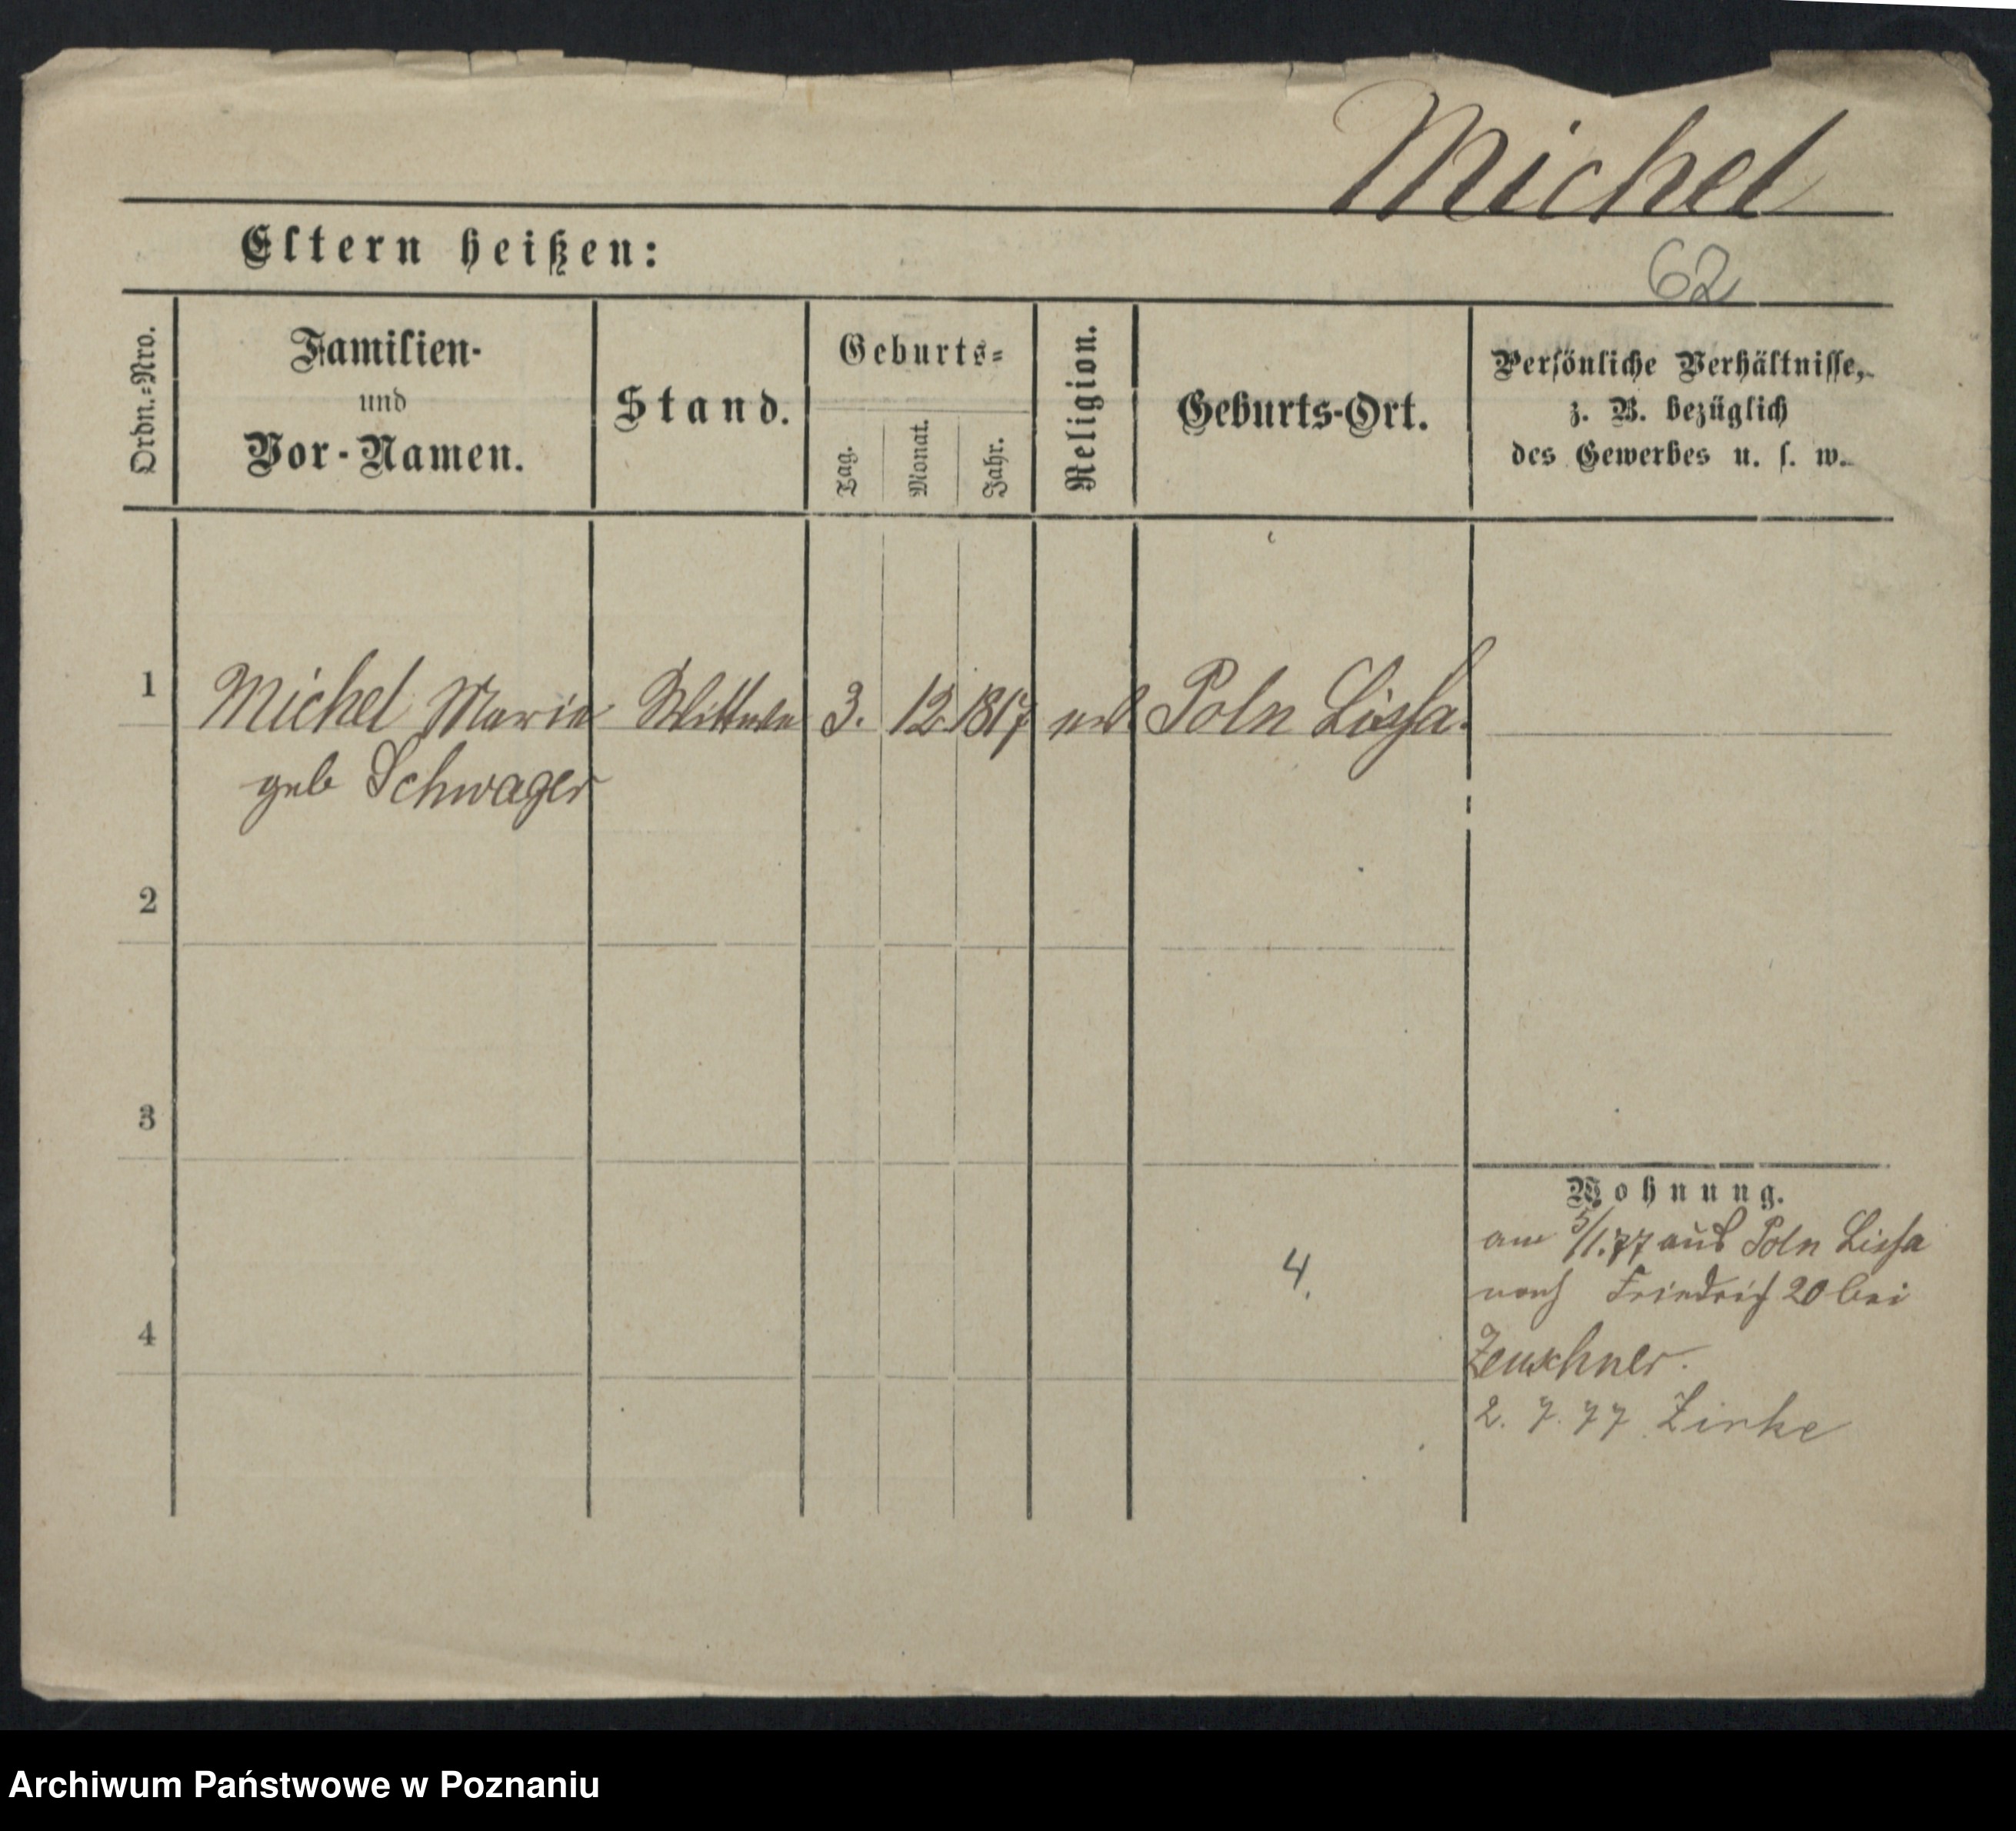 Michel
Eltern heißen:
62
Ordn.=Nro.
Familien-
und
Vor-Namen.
Stand.
Geburts=
Tag.
Monat.
Jahr.
Religion.
Geburts-Ort.
Persönliche Verhältnisse,
z. B. bezüglich
des Gewerbes u. s. w.
1 Michel Marie Wittwe 3. 12. 1817 Poln Lissa.
geb Schwager
2
3
Wohnung.
am 5/1.77 aus Poln Lissa
4. nach Friedrich 20 bei
4 Zeuschner.
2. 7. 77 Zirke
Archiwum Państwowe w Poznaniu